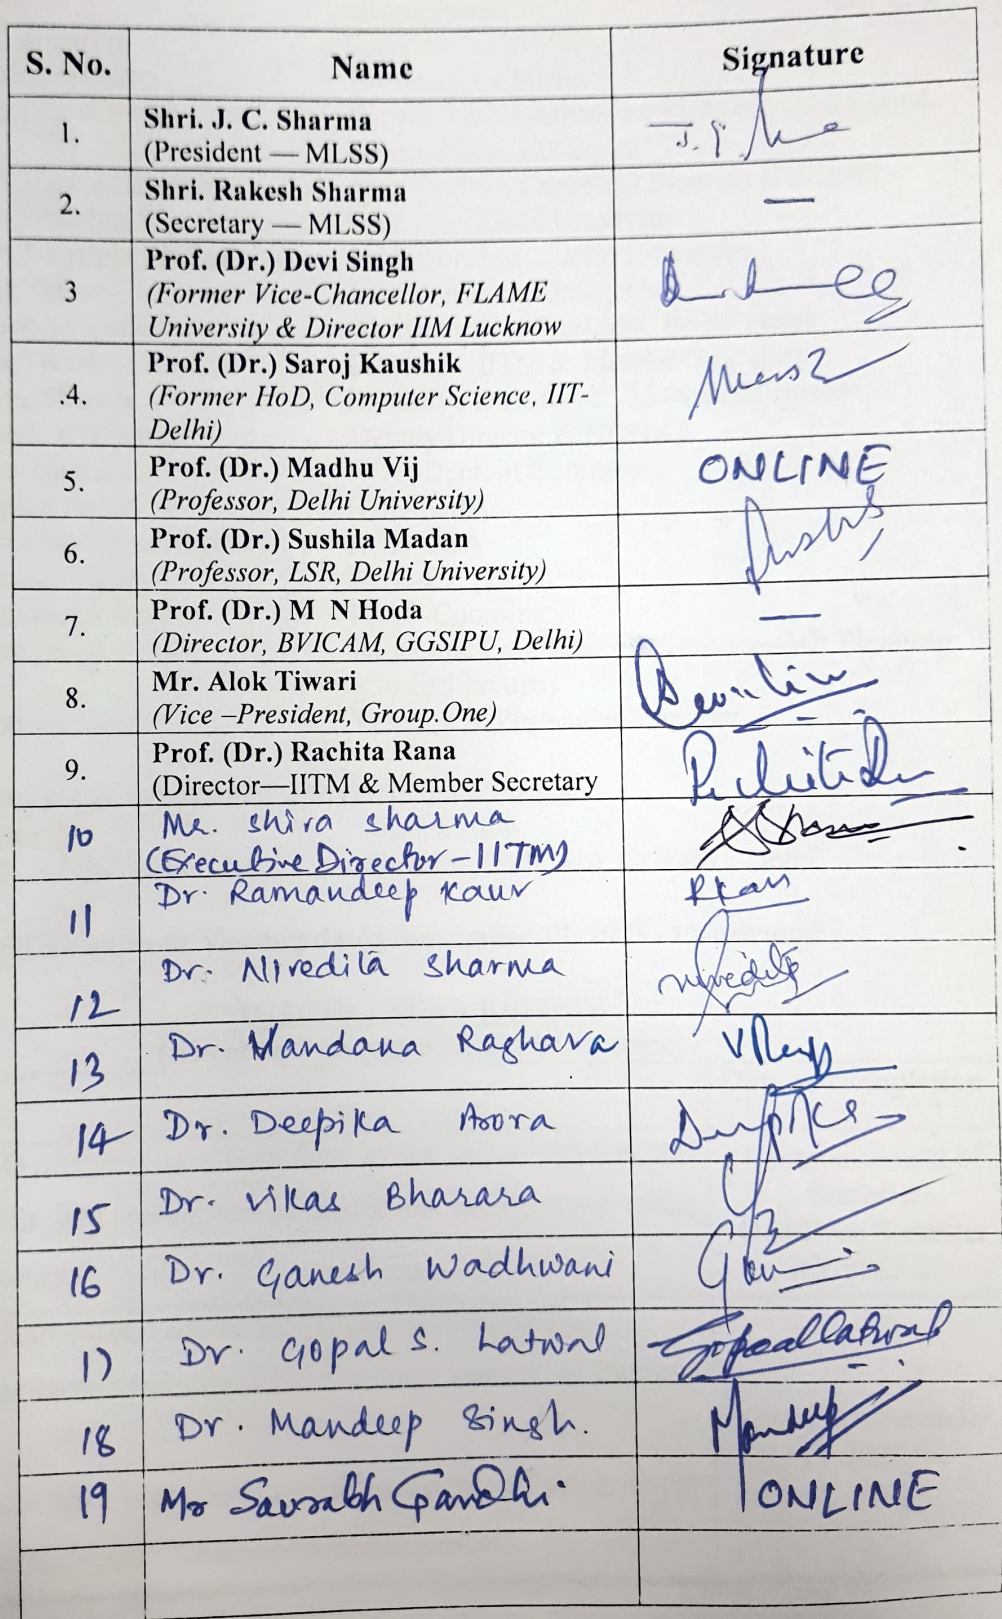 S. No. Name Signature
1. Shri. J. C. Sharma
(President — MLSS)
2. Shri. Rakesh Sharma —
(Secretary — MLSS)
3 Prof. (Dr.) Devi Singh
(Former Vice-Chancellor, FLAME
University & Director IIM Lucknow
.4. Prof. (Dr.) Saroj Kaushik
(Former HoD, Computer Science, IIT-
Delhi)
5. Prof. (Dr.) Madhu Vij ONLINE
(Professor, Delhi University)
6. Prof. (Dr.) Sushila Madan
(Professor, LSR, Delhi University)
7. Prof. (Dr.) M N Hoda —
(Director, BVICAM, GGSIPU, Delhi)
8. Mr. Alok Tiwari
(Vice –President, Group.One)
9. Prof. (Dr.) Rachita Rana
(Director—IITM & Member Secretary
10 Mr. Shiva Sharma
(Executive Director - IITM)
11 Dr. Ramandeep Kaur RKaur
12 Dr. Nivedita Sharma Nivedita
13 Dr. Vandana Raghava
14 Dr. Deepika Arora Deepika
15 Dr. Vikas Bharara
16 Dr. Ganesh Wadhwani
17 Dr. Gopal S. Latwal Gopallatwal
18 Dr. Mandeep Singh. Mandeep
19 Mr Saurabh Gandhi ONLINE